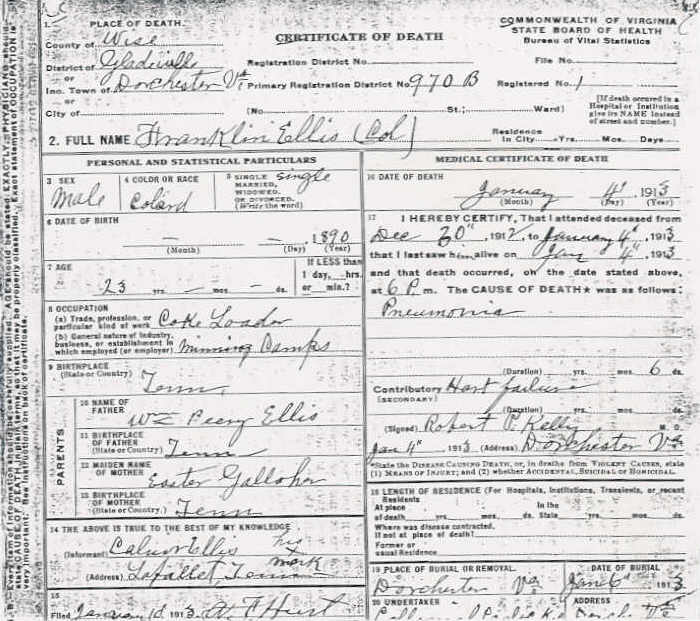 1. PLACE OF DEATH.
COMMONWEALTH OF VIRGINIA
STATE BOARD OF HEALTH
Bureau of Vital Statistics
CERTIFICATE OF DEATH
County of Wise
District of Gladeville
or
Inc. Town of Dorchester Va
or
City of
Registration District No.
File No.
Primary Registration District No 970 B
Registered No. 1
(No. St.; Ward)
[If death occurred in a
Hospital or Institution
give its NAME instead
of street and number.]
2. FULL NAME Franklin Ellis (Col)
Residence
In City Yrs. Mos. Days
PERSONAL AND STATISTICAL PARTICULARS
3 SEX
Male
4 COLOR OR RACE
Colard
5 SINGLE
MARRIED,
WIDOWED,
OR DIVORCED.
(Write the word)
single
6 DATE OF BIRTH
— — 1890
(Month) (Day) (Year)
7 AGE
23 yrs. — mos. — ds.
If LESS than
1 day, hrs.
or min.?
8 OCCUPATION
(a) Trade, profession, or
particular kind of work Coke Loader
(b) General nature of industry,
business, or establishment in
which employed (or employer) Minning Camps
9 BIRTHPLACE
(State or Country)
Tenn
PARENTS
10 NAME OF
FATHER
Ellis
11 BIRTHPLACE
OF FATHER
(State or Country) Tenn
12 MAIDEN NAME
OF MOTHER
Easter Galloher
13 BIRTHPLACE
OF MOTHER
(State or Country.) Tenn
14 THE ABOVE IS TRUE TO THE BEST OF MY KNOWLEDGE
(Informant) Ellis his
x
mark
(Address) Lafallet, Tenn
15
Filed January 1913
MEDICAL CERTIFICATE OF DEATH
16 DATE OF DEATH
January 4" 1913
(Month) (Day) (Year)
17 I HEREBY CERTIFY, That I attended deceased from
Dec 30", 1912, to January 4", 1913
that I last saw him alive on Jan 4", 1913
and that death occurred, on the date stated above,
at 6 P. m. The CAUSE OF DEATH★ was as follows:
Pneumonia
(Duration) yrs. mos. 6 ds.
Contributory Hart failure
(SECONDARY)
(Duration) yrs. mos. ds.
(Signed) Robert Kelly M. D.
Jan 4" 1913 (Address) Dorchester Va
*State the DISEASE CAUSING DEATH, or, in deaths from VIOLENT CAUSES, state
(1) MEANS OF INJURY; and (2) whether ACCIDENTAL, SUICIDAL or HOMICIDAL.
18 LENGTH OF RESIDENCE (For Hospitals, Institutions, Transients, or recent
Residents
At place In the
of death yrs. mos. ds. State yrs. mos. ds.
Where was disease contracted,
If not at place of death?
Former or
usual Residence
19 PLACE OF BURIAL OR REMOVAL. DATE OF BURIAL
Dorchester Va Jan 6 1913
20 UNDERTAKER ADDRESS